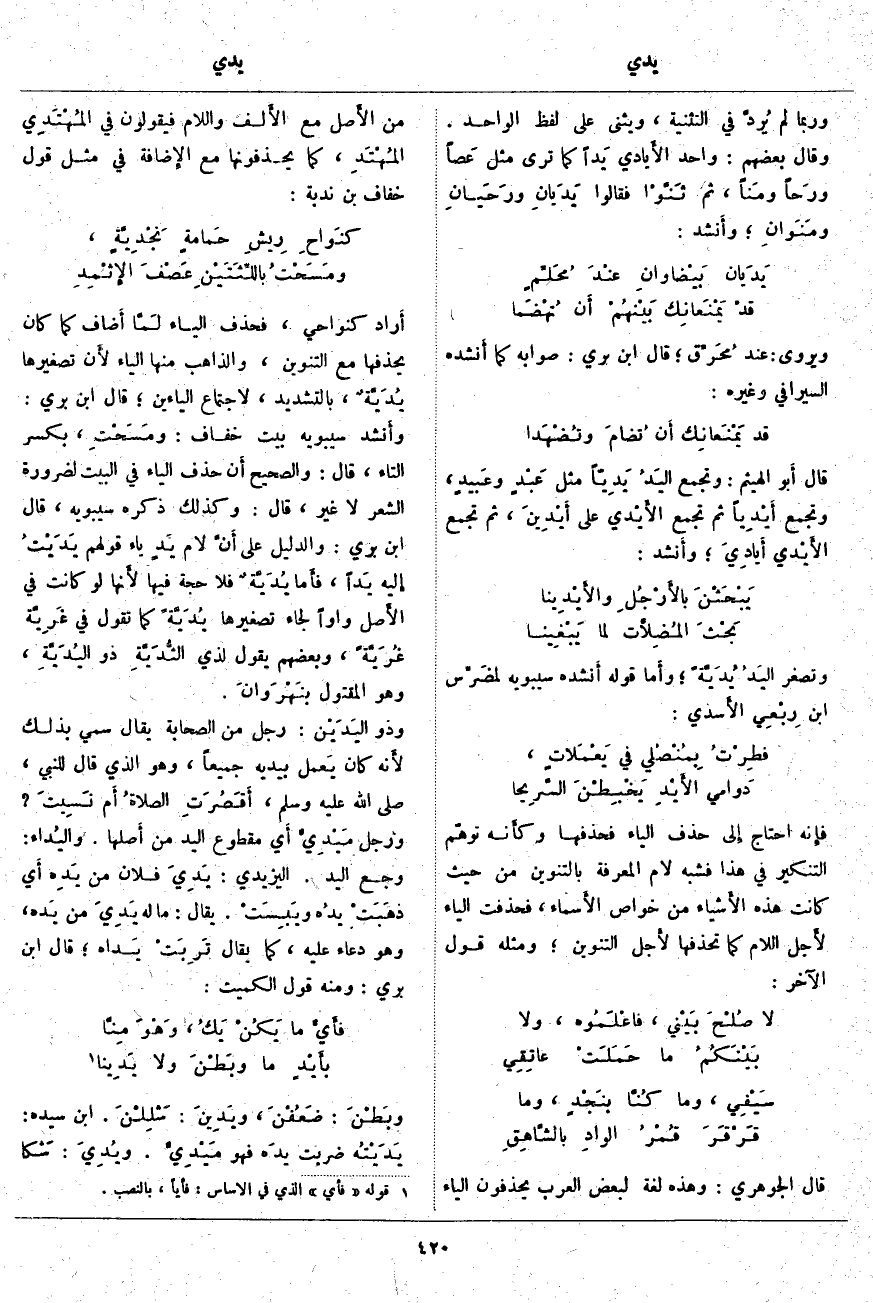 يدي
يدي
وربما لم يُردَّ في التثنية ، ويثنى على لفظ الواحد .
وقال بعضهم : واحد الأيادي يَداً كما ترى مثل عَصاً
ورَحاً ومَناً ، ثم ثَنَّوْا فقالوا يَدَيانِ ورَحَيانِ
ومَنَوانِ ؛ وأنشد :
يَدَيان بَيْضاوانِ عندَ مُحَلِّمٍ
قدْ يَمْنَعانِك بَيْنهُمْ أن تُهْضَما
ويروى : عند مُحَرِّق ؛ قال ابن بري : صوابه كما أنشده
السيرافي وغيره :
قد يَمْنَعانِك أن تُضامَ وتُضْهَدا
قال أبو الهيثم : وتجمع اليَدُ يَدِيّاً مثل عَبْدٍ وعَبيدٍ ،
وتجمع أَيْدِياً ثم تجمع الأَيْدي على أَيْدِينَ ، ثم تجمع
الأَيْدي أَيادِيَ ؛ وأنشد :
يَبْحَثْنَ بالأَرْجُلِ والأَيْدِينا
بَحْثَ المُضِلاَّت لما يَبْغِينا
وتصغر اليَدُ يُدَيَّةً ؛ وأما قوله أنشده سيبويه لمُضَرِّس
ابن رِبْعِي الأَسدي :
فطِرْتُ بِمُنْصُلي في يَعْمَلاتٍ ،
دَوامي الأَيْدِ يَخْبِطْنَ السَّريحا
فإِنه احتاج إلى حذف الياء فحذفها وكأَنه توهّم
التنكير في هذا فشبه لام المعرفة بالتنوين من حيث
كانت هذه الأَشياء من خواص الأَسماء ، فحذفت الياء
لأَجل اللام كما تحذفها لأَجل التنوين ؛ ومثله قول
الآخر :
لا صُلْحَ بَيْني ، فاعْلَمُوه ، ولا
بَيْنَكُمُ ما حَمَلَتْ عاتِقِي
سَيْفِي ، وما كُنَّا بنَجْدٍ ، وما
قَرْقَرَ قُمْرُ الوادِ بالشَّاهِقِ
قال الجوهري : وهذه لغة لبعض العرب يحذفون الياء
من الأَصل مع الأَلف واللام فيقولون في المُهْتَدِي
المُهْتَدِ ، كما يحذفونها مع الإِضافة في مثل قول
خفاف بن ندبة :
كنَواحِ رِيشِ حَمامةٍ نَجْدِيَّةٍ ،
ومَسَحْتُ باللِّثَتَيْنِ عَصْفَ الإِثْمِدِ
أَراد كنواحي ، فحذف الياء لَمَّا أضاف كما كان
يحذفها مع التنوين ، والذاهب منها الياء لأن تصغيرها
يُدَيَّةٌ ، بالتشديد ، لاجتماع الياءين ؛ قال ابن بري :
وأَنشد سيبويه بيت خفاف : ومَسَحْتِ ، بكسر
التاء ، قال : والصحيح أن حذف الياء في البيت لضرورة
الشعر لا غير ، قال : وكذلك ذكره سيبويه ، قال
ابن بري : والدليل على أَنَّ لام يَدٍ ياء قولهم يَدَيْتُ
إليه يَداً ، فأَما يُدَيَّةٌ فلا حجة فيها لأَنها لو كانت في
الأَصل واواً لجاء تصغيرها يُدَيَّةً كما تقول في غَرِيَّة
غُرَيَّةً ، وبعضهم يقول لذي الثُّدَيَّةِ ذو اليُدَيَّةِ ،
وهو المقتول بنَهْرَوانَ .
وذو اليَدَيْن : رجل من الصحابة يقال سمي بذلك
لأَنه كان يَعمل بيديه جميعاً ، وهو الذي قال للنبي ،
صلى الله عليه وسلم ، أَقَصُرَتِ الصلاةُ أم نَسِيتَ ؟
ورَجل مَيْدِيٌّ أي مقطوع اليد من أصلها . واليُداء :
وجع اليد . اليزيدي : يَدِيَ فلان من يَدِه أي
ذهَبَتْ يدُه ويَبِسَتْ . يقال : ما له يَدِيَ من يَدِه ،
وهو دعاء عليه ، كما يقال تَرِبَتْ يَداه ؛ قال ابن
بري : ومنه قول الكميت :
فأَيٌّ ما يَكُنْ يَكُ ، وَهْوَ مِنَّا
بأَيْدٍ ما وبَطْنَ ولا يَدِينا ١
وبَطْنَ : ضَعُفْنَ ، ويَدِينَ : شَلِلْنَ . ابن سيده :
يَدَيْتُه ضربت يدَه فهو مَيْدِيٌّ . ويُدِيَ : شَكا
١ قوله « فأي » الذي في الاساس : فأياً ، بالنصب .
٤٢٠